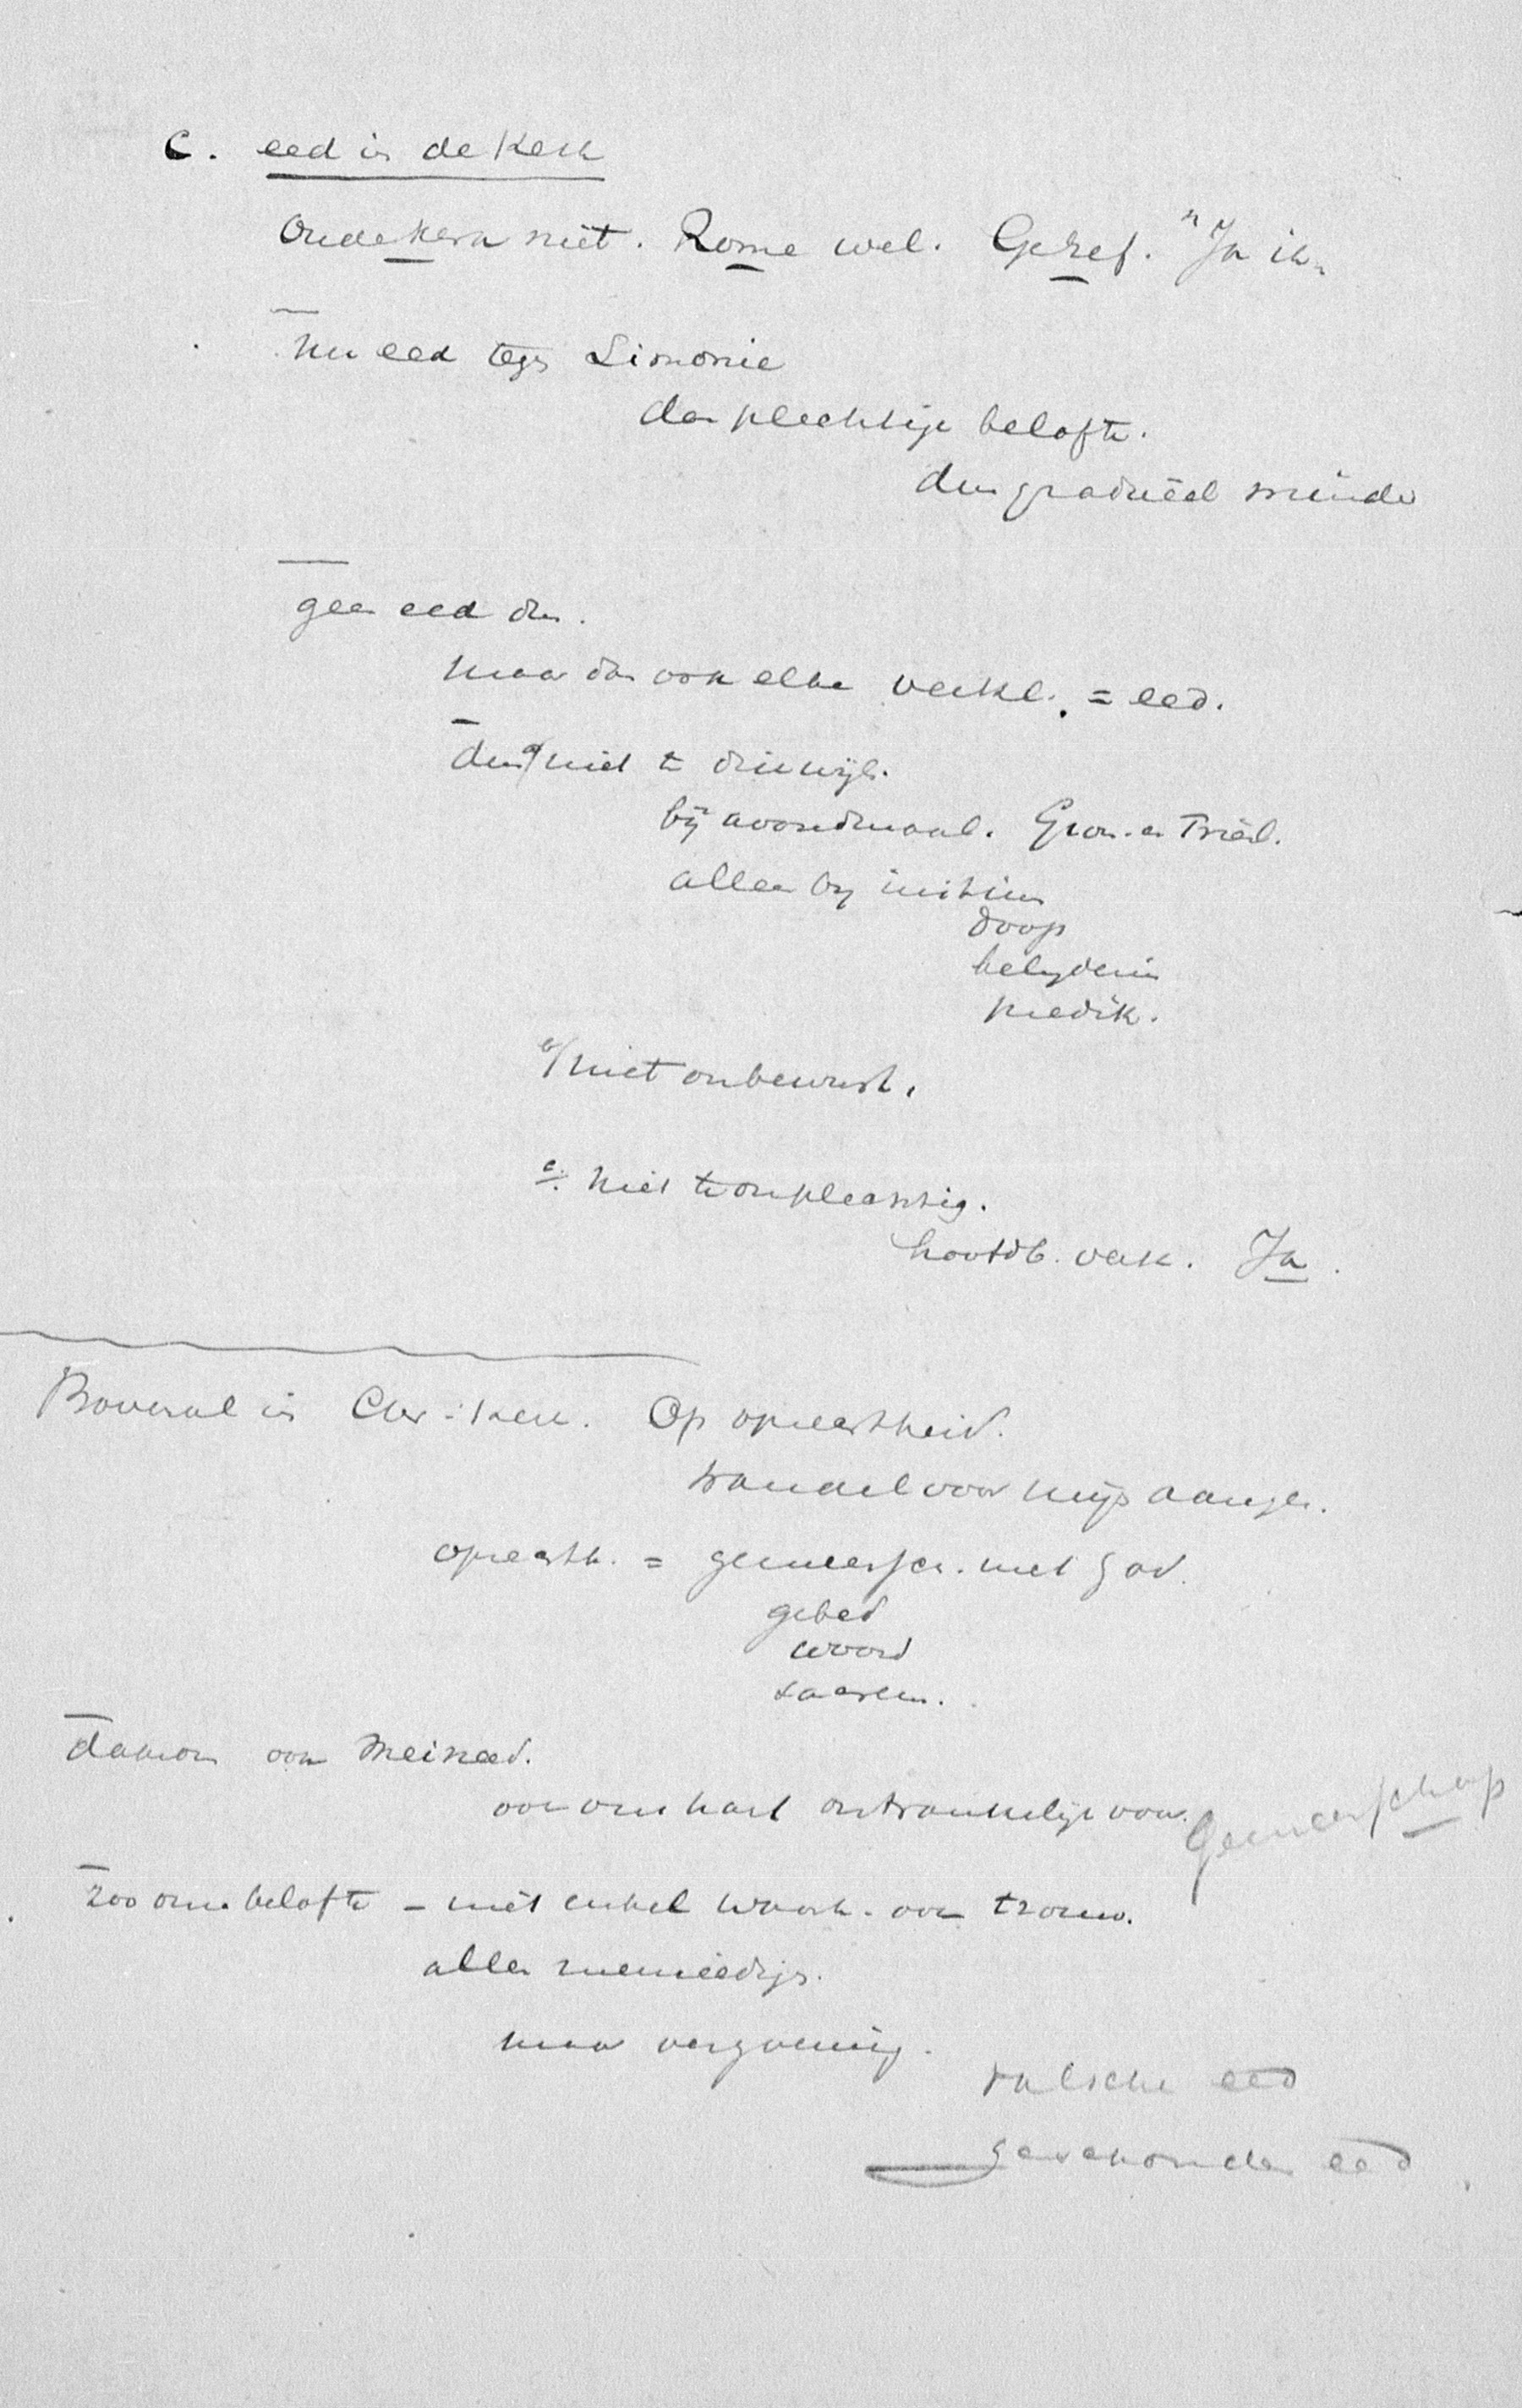 C. eed in de kerk
Oude kerk niet. Rome wel. Geref. "Ja ik"
Nu eed tegen Simonie
dan plechtige belofte.
dus gradueel minder
geen eed dus.
maar dan ook elke verkl. = eed.
dus a/ niet te dikwijls.
bij avondmaal. Gron. en Friesl.
alleen bij initium
doop
belijdenis
predik.
b/ niet onbewust.
c. niet te onplechtig.
hoofdb. Ja.
Bovenal in Chr. kerk. Op oprechtheid.
wandel voor mijn aanges.
oprechth. = gemeensch. met God.
gebed
woord
sacrem.
daarom ook Meineed.
ook ons hart ontvankelijk voor.
Gemeenschap
zoo onze belofte - niet enkel waarh. ook trouw.
allen meineedigs.
maar vergeving.
valsche eed
geschonden eed